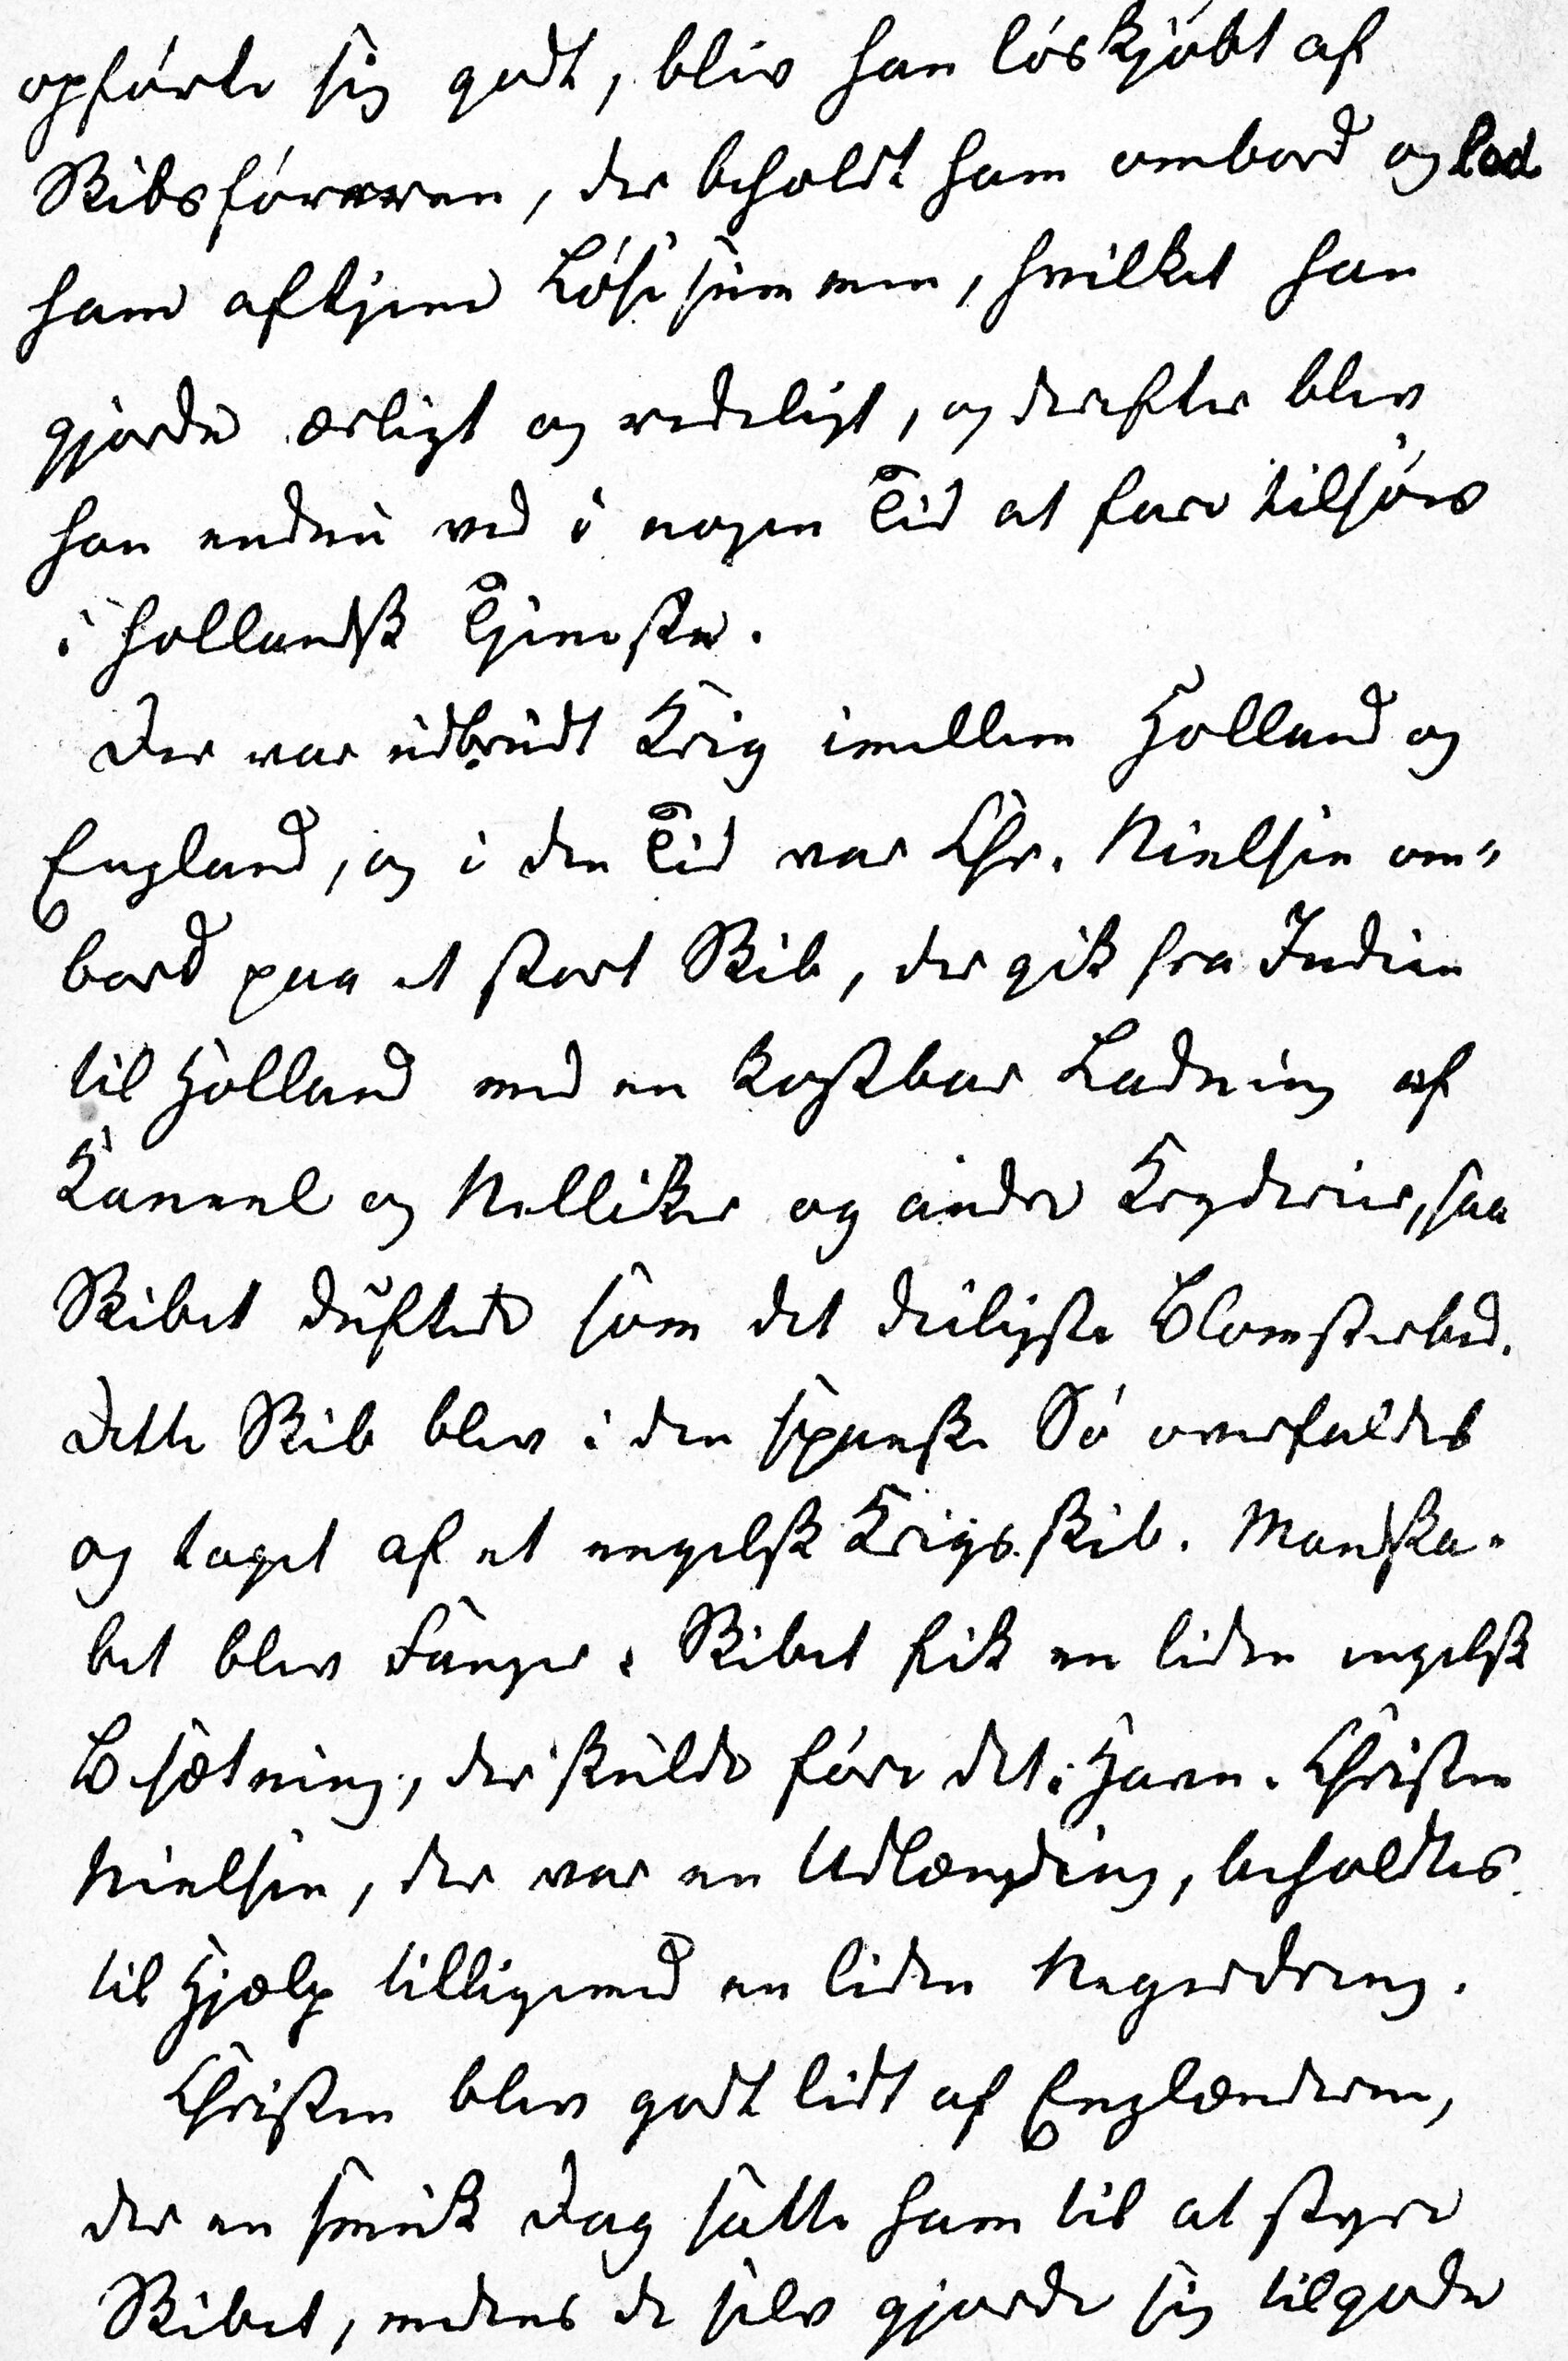 opførte sig godt, blev han løskjøbt af
Skibsføreren, der beholdt ham ombord og lod
ham aftjene Løsesummen, hvilket han
gjorde ærligt og redeligt, og derefter blev
han endnu ved i nogen Tid at fare tilsøes
i hollandsk Tjeneste.
Der var udbrudt Krig imellem Holland og
England, og i den Tid var Chr. Nielsen om„
bord paa et stort Skib, der gik fra Indien
til Holland med en kostbar Ladning af
Kaneel og Nelliker og andre Kryderier, saa
Skibet duftede som det deiligste Blomsterbed.
Dette Skib blev i den spanske Sø overfaldet
og taget af et engelsk Krigsskib. Mandska-
bet blev Fanger. Skibet fik en liden engelsk
Besætning, der skulde føre det i Havn. Christen
Nielsen, der var en Udlænding, beholdtes
til Hjælp tilligemed en liden Negerdreng.
Christen blev godt lidt af Englænderne,
der en smuk Dag satte ham til at styre
Skibet, medens de selv gjorde sig tilgode